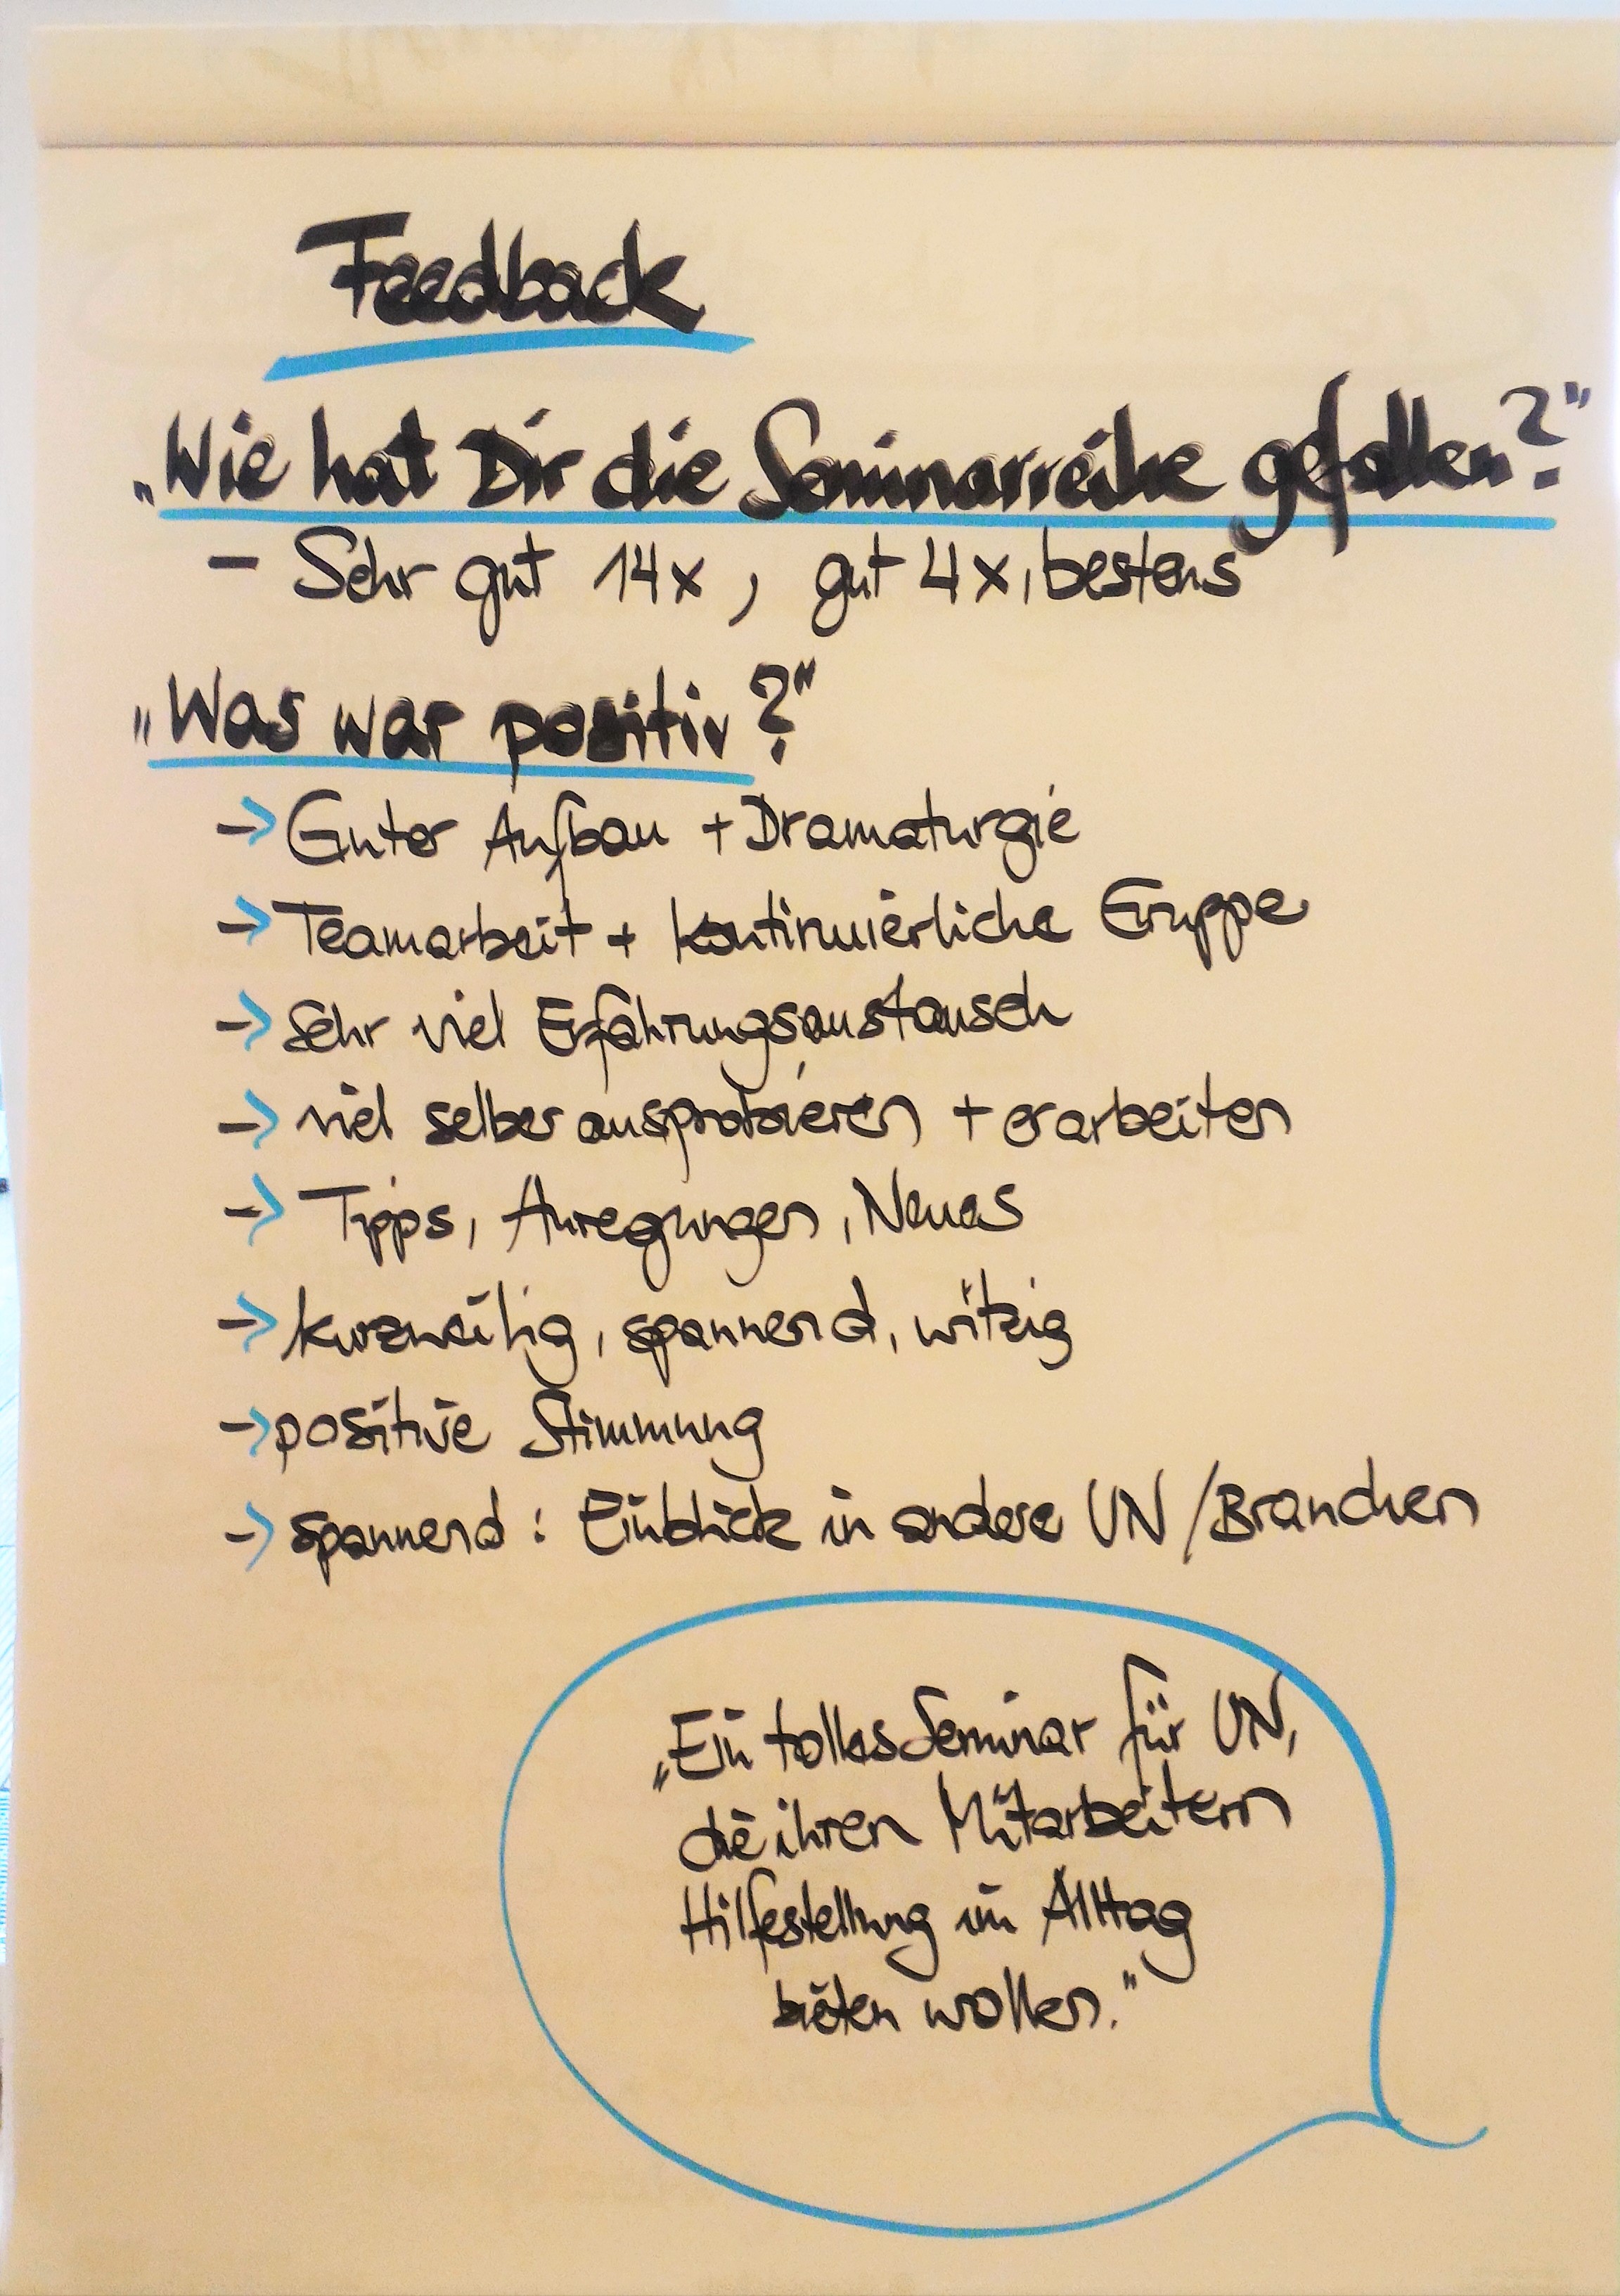 Feedback
„Wie hat Dir die Seminarreihe gefallen?"
- Sehr gut 14x, gut 4x, bestens
„Was war positiv?"
→ Guter Aufbau + Dramaturgie
→ Teamarbeit + kontinuierliche Gruppe
→ Sehr viel Erfahrungsaustausch
→ viel selber ausprobieren + erarbeiten
→ Tipps, Anregungen, Neues
→ kurzweilig, spannend, witzig
→ positive Stimmung
→ spannend: Einblick in andere UN/Branchen
„Ein tolles Seminar für UN,
die ihren Mitarbeitern
Hilfestellung im Alltag
bieten wollen."